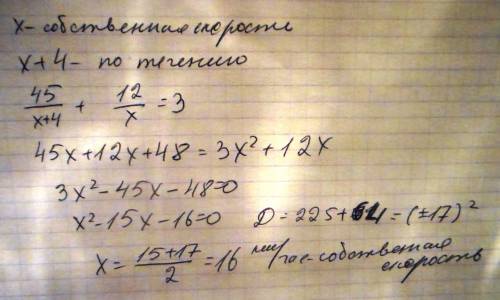 x - собственная скорость
x+4 - по течению
45/(x+4) + 12/x = 3
45x+12x+48 = 3x²+12x
3x²-45x-48=0
x²-15x-16=0 D = 225+64 = (±17)²
x = (15+17)/2 = 16 км/час - собственная скорость